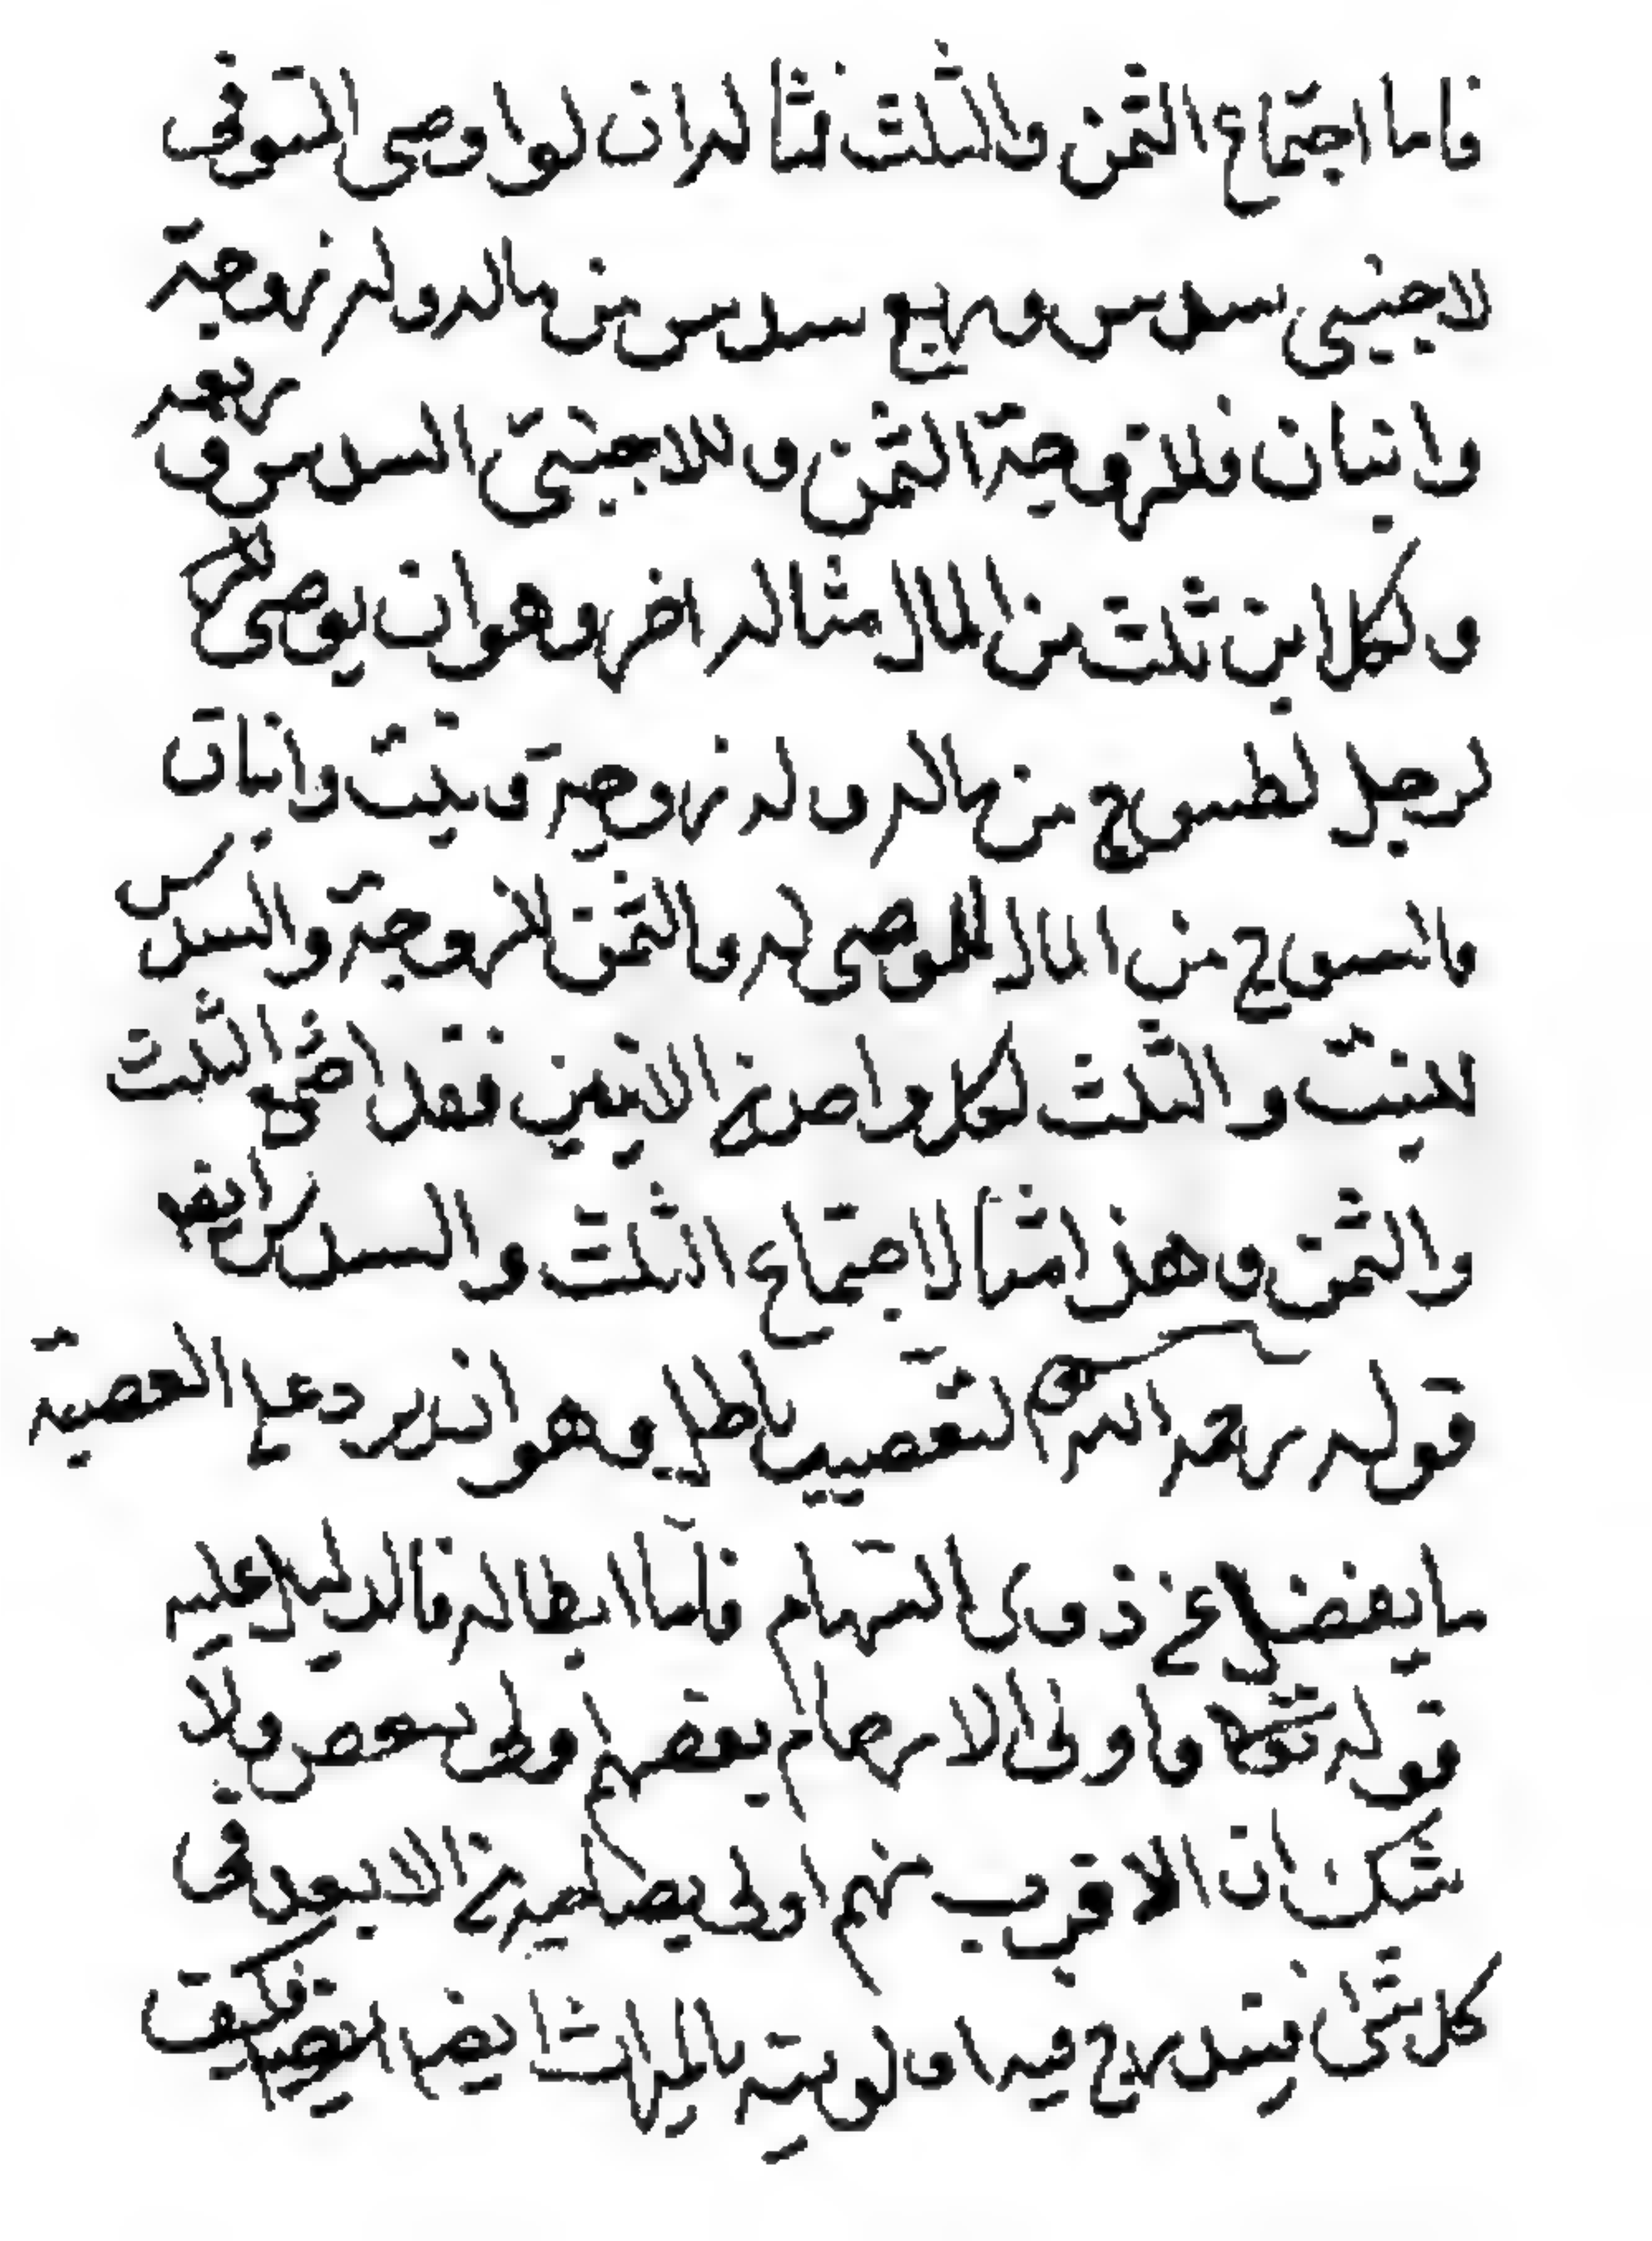 فاما اجتماع الثمن والثلث فثاله ان لو اوصى المتوفى
لاجنبى سدس وربع سدس من ماله وله زوجة
وابنان فللزوجة الثمن وللاجنبى السدس وربعه
ولكل ابن ثلث من المال مثاله اخر وهو ان يوصى
لرجل لطسوج من ماله وله زوجة وبنت وابنان
فالطسوج من المال للموصى له والثمن للزوجة والسدس
للبنت والثلث لكل واحد من الاثنين فقد اجتمع الثلث
والثمن وهذا مثال اجتماع الثلث والسدس ايضا
قوله رحمه الله التعصيب باطل وهو ان يرد على العصبة
ما يفضل عن ذوى السهام فاما ابطاله فالدليل عليه
قوله تعالى واولى الارحام بعضهم اولى ببعض ولا
شك ان الاقرب منهم اولى من الابعد فى
كل شئ فيندرج فيه اولويته بالميراث ايضا فكيف